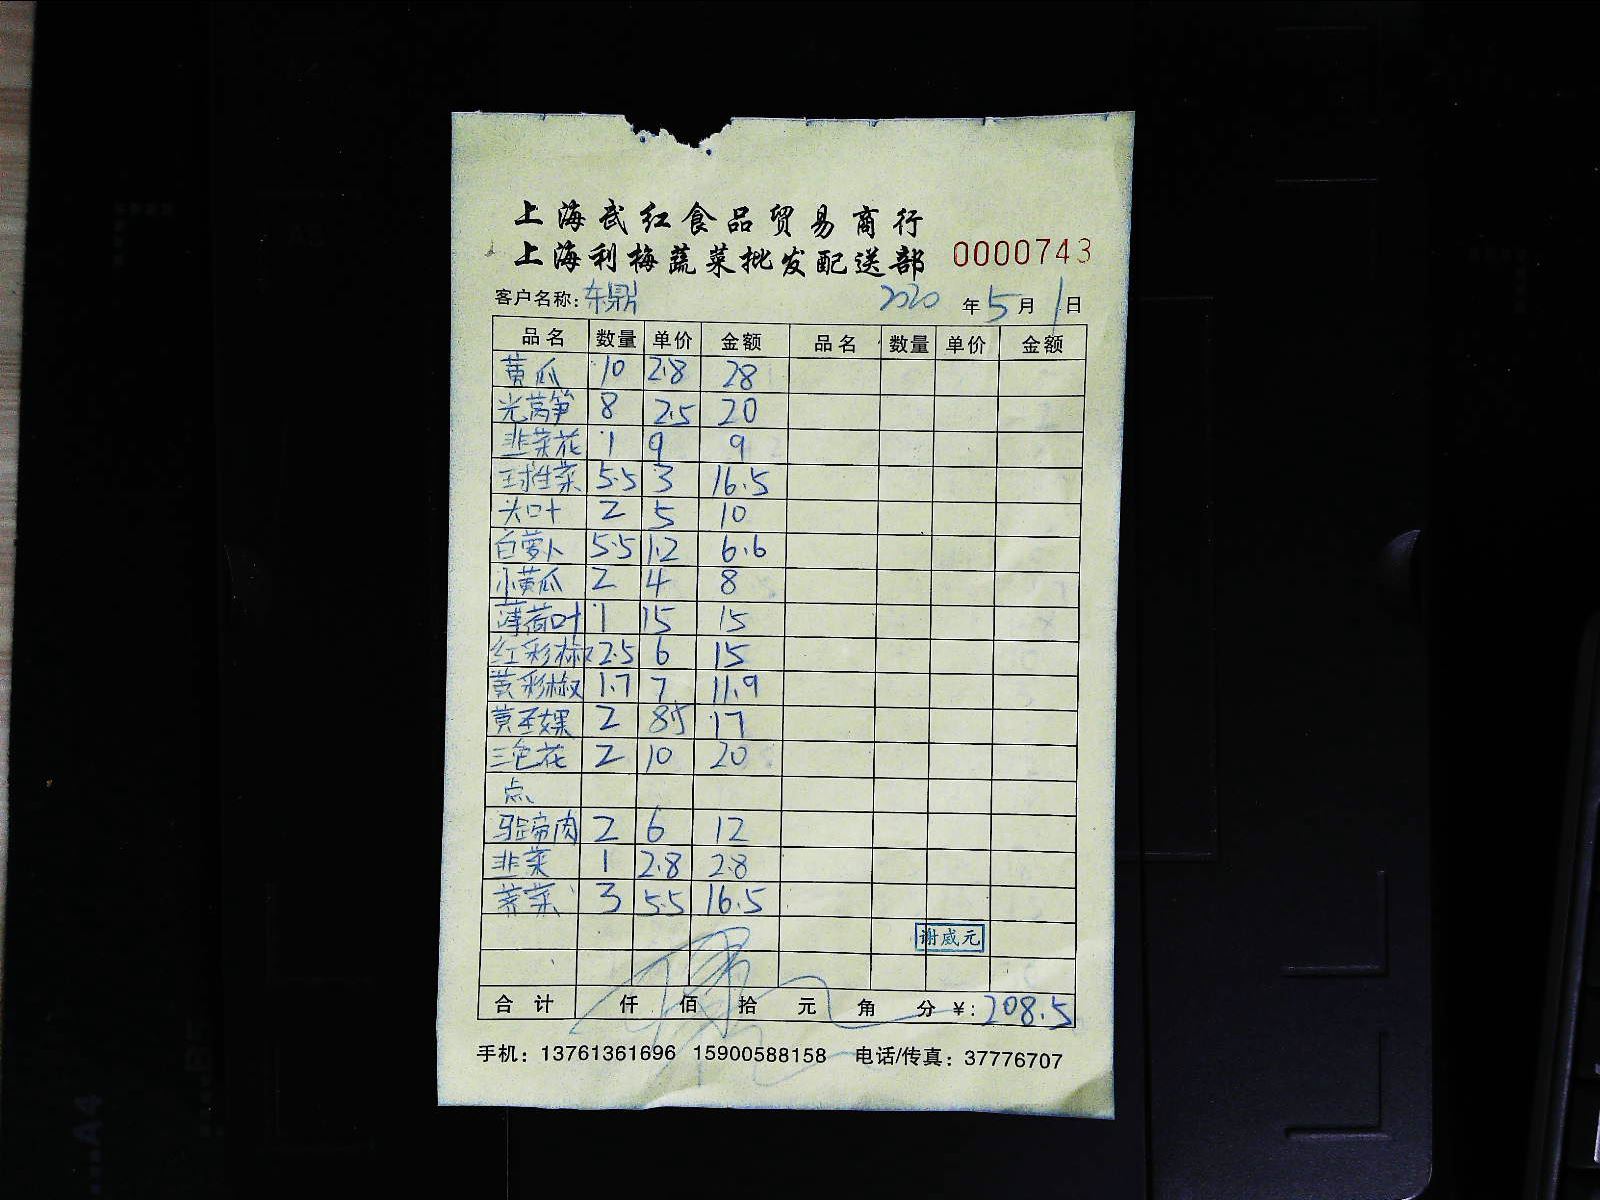 上海武红食品贸易商行
上海利梅蔬菜批发配送部 0000743
客户名称: 东鼎 2020 年 5 月 1 日
品名 数量 单价 金额 品名 数量 单价 金额
黄瓜 10 2.8 28
光莴笋 8 2.5 20
韭菜花 1 9 9
球生菜 5.5 3 16.5
大叶 2 5 10
白萝卜 5.5 1.2 6.6
小黄瓜 2 4 8
薄荷叶 1 15 15
红彩椒 2.5 6 15
黄彩椒 1.7 7 11.9
黄圣女果 2 8.5 17
三色花 2 10 20
点
马蹄肉 2 6 12
韭菜 1 2.8 2.8
荠菜 3 5.5 16.5
谢威元
合计 仟 佰 拾 元 角 分 ¥: 208.5
手机: 13761361696 15900588158 电话/传真: 37776707